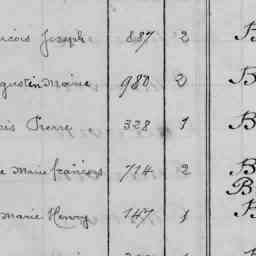 ncois Joseph 887 2 B
gustin Marie 980 2 B
is Pierre 328 1 B
e Marie françois 714 2 B
B
Marie Henry 147 1 B